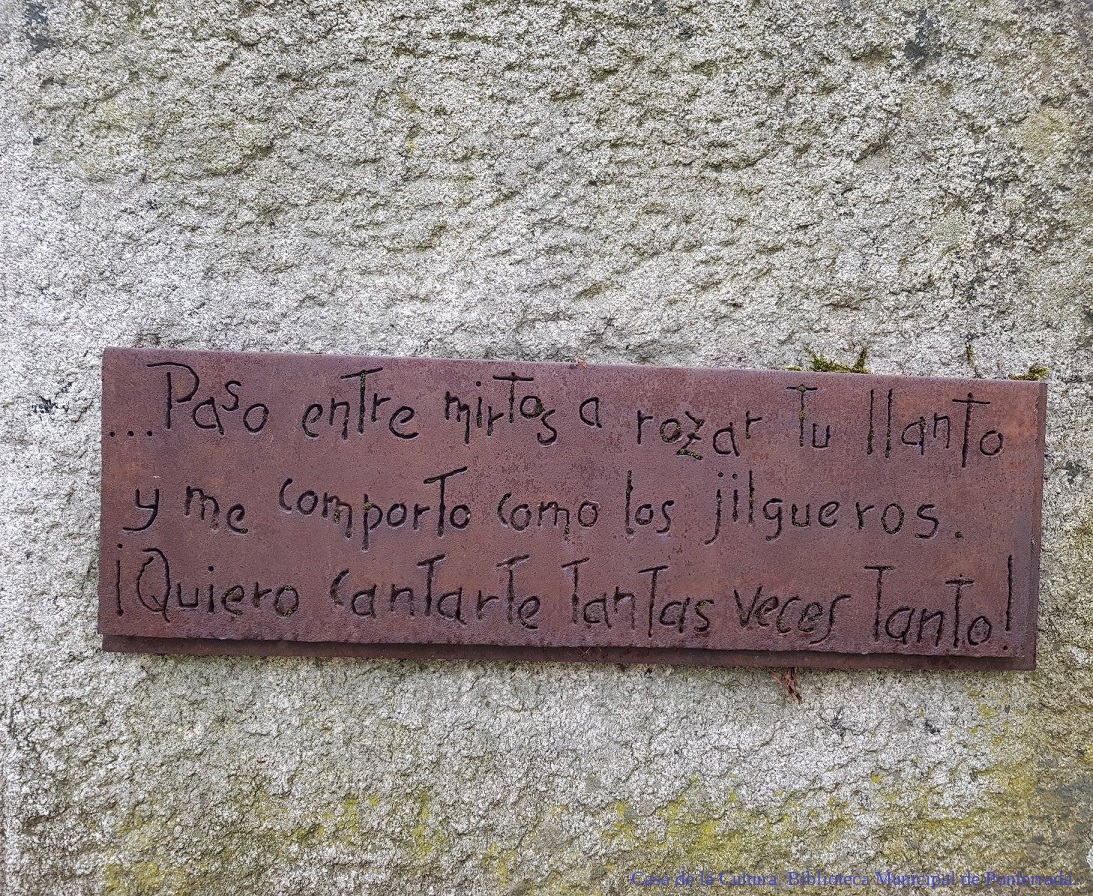 ...Paso entre mirtos a rozar tu llanto
y me comporto como los jilgueros.
¡Quiero cantarte tantas veces tanto!
Casa de la Cultura. Biblioteca Municipal de Ponferrada...